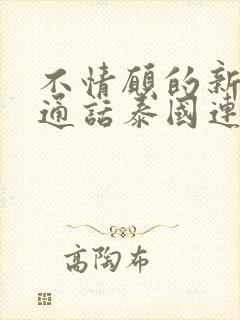 不情願的新
通話泰國連
高陶布